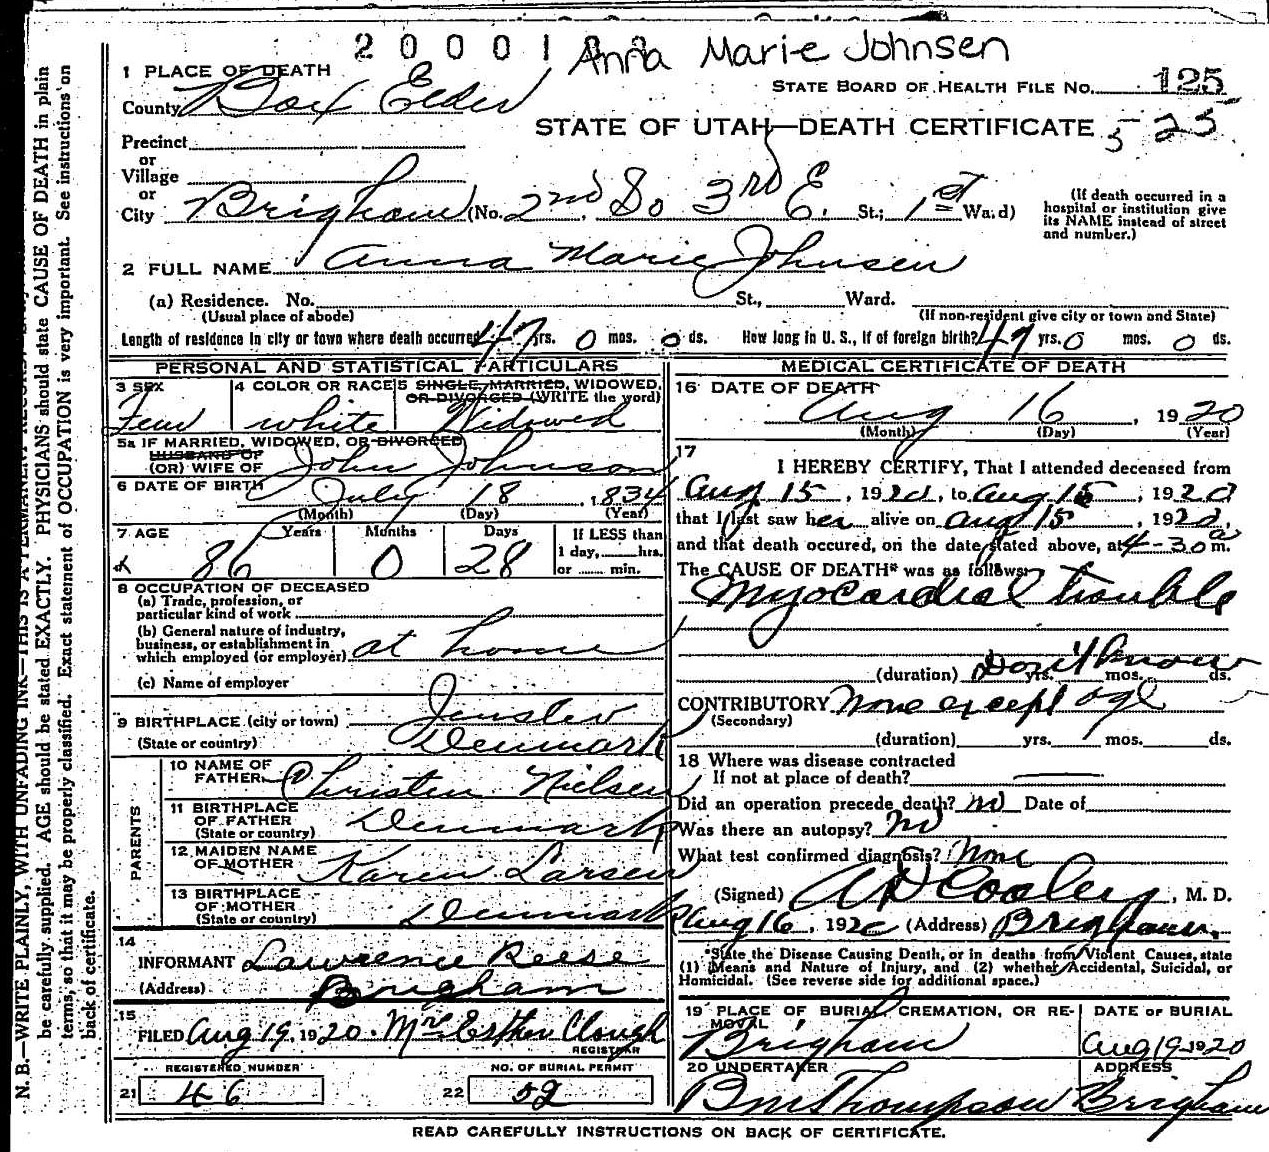 2 0 0 0 1
Anna Marie Johnsen
1 PLACE OF DEATH
STATE BOARD OF HEALTH FILE NO. 125
County Box Elder
STATE OF UTAH—DEATH CERTIFICATE 525
Precinct
or
Village
or
City Brigham (No. 2nd So 3rd E. St.; 1st Ward)
(If death occurred in a hospital or institution give its NAME instead of street and number.)
2 FULL NAME Anna Marie Johnsen
(a) Residence. No. St., Ward.
(Usual place of abode) (If non-resident give city or town and State)
Length of residence in city or town where death occurred 47 yrs. 0 mos. 0 ds. How long in U. S., if of foreign birth? 47 yrs. 0 mos. 0 ds.
PERSONAL AND STATISTICAL PARTICULARS
3 SEX
Fem
4 COLOR OR RACE
white
5 SINGLE, MARRIED, WIDOWED,
OR DIVORCED (WRITE the word)
Widowed
5a IF MARRIED, WIDOWED, OR DIVORCED
HUSBAND OF
(OR) WIFE OF John Johnson
6 DATE OF BIRTH July 18, 1834
(Month) (Day) (Year)
7 AGE Years Months Days
86 0 28
If LESS than
1 day, hrs.
or min.
8 OCCUPATION OF DECEASED
(a) Trade, profession, or
particular kind of work
(b) General nature of industry,
business, or establishment in
which employed (or employer) at home
(c) Name of employer
9 BIRTHPLACE (city or town)
(State or country) Denmark
PARENTS
10 NAME OF
FATHER Christen Nielsen
11 BIRTHPLACE
OF FATHER
(State or country) Denmark
12 MAIDEN NAME
OF MOTHER Karen Larsen
13 BIRTHPLACE
OF MOTHER
(State or country) Denmark
14
INFORMANT Lawrence Reese
(Address) Brigham
15
FILED Aug 19, 1920. Mrs Esther Clough
REGISTRAR
REGISTERED NUMBER
21 46
NO. OF BURIAL PERMIT
22 52
MEDICAL CERTIFICATE OF DEATH
16 DATE OF DEATH
Aug 16, 1920
(Month) (Day) (Year)
17
I HEREBY CERTIFY, That I attended deceased from
Aug 15, 1920, to Aug 15, 1920
that I last saw her alive on Aug 15, 1920,
and that death occured, on the date stated above, at 4-30 a m.
The CAUSE OF DEATH* was as follows:
Myocardial trouble
(duration) Don't know yrs. mos. ds.
CONTRIBUTORY None except age
(Secondary)
(duration) yrs. mos. ds.
18 Where was disease contracted
If not at place of death?
Did an operation precede death? no Date of
Was there an autopsy? no
What test confirmed diagnosis? None
(Signed) A D Cooley, M. D.
Aug 16, 1920 (Address) Brigham.
*State the Disease Causing Death, or in deaths from Violent Causes, state
(1) Means and Nature of Injury, and (2) whether Accidental, Suicidal, or
Homicidal. (See reverse side for additional space.)
19 PLACE OF BURIAL, CREMATION, OR RE-
MOVAL
Brigham
DATE OF BURIAL
Aug 19 1920
20 UNDERTAKER
B M Thompson
ADDRESS
Brigham
READ CAREFULLY INSTRUCTIONS ON BACK OF CERTIFICATE.
N. B.—WRITE PLAINLY, WITH UNFADING INK—THIS IS A PERMANENT RECORD.
be carefully supplied. AGE should be stated EXACTLY. PHYSICIANS should state CAUSE OF DEATH in plain
terms, so that it may be properly classified. Exact statement of OCCUPATION is very important. See instructions on
back of certificate.